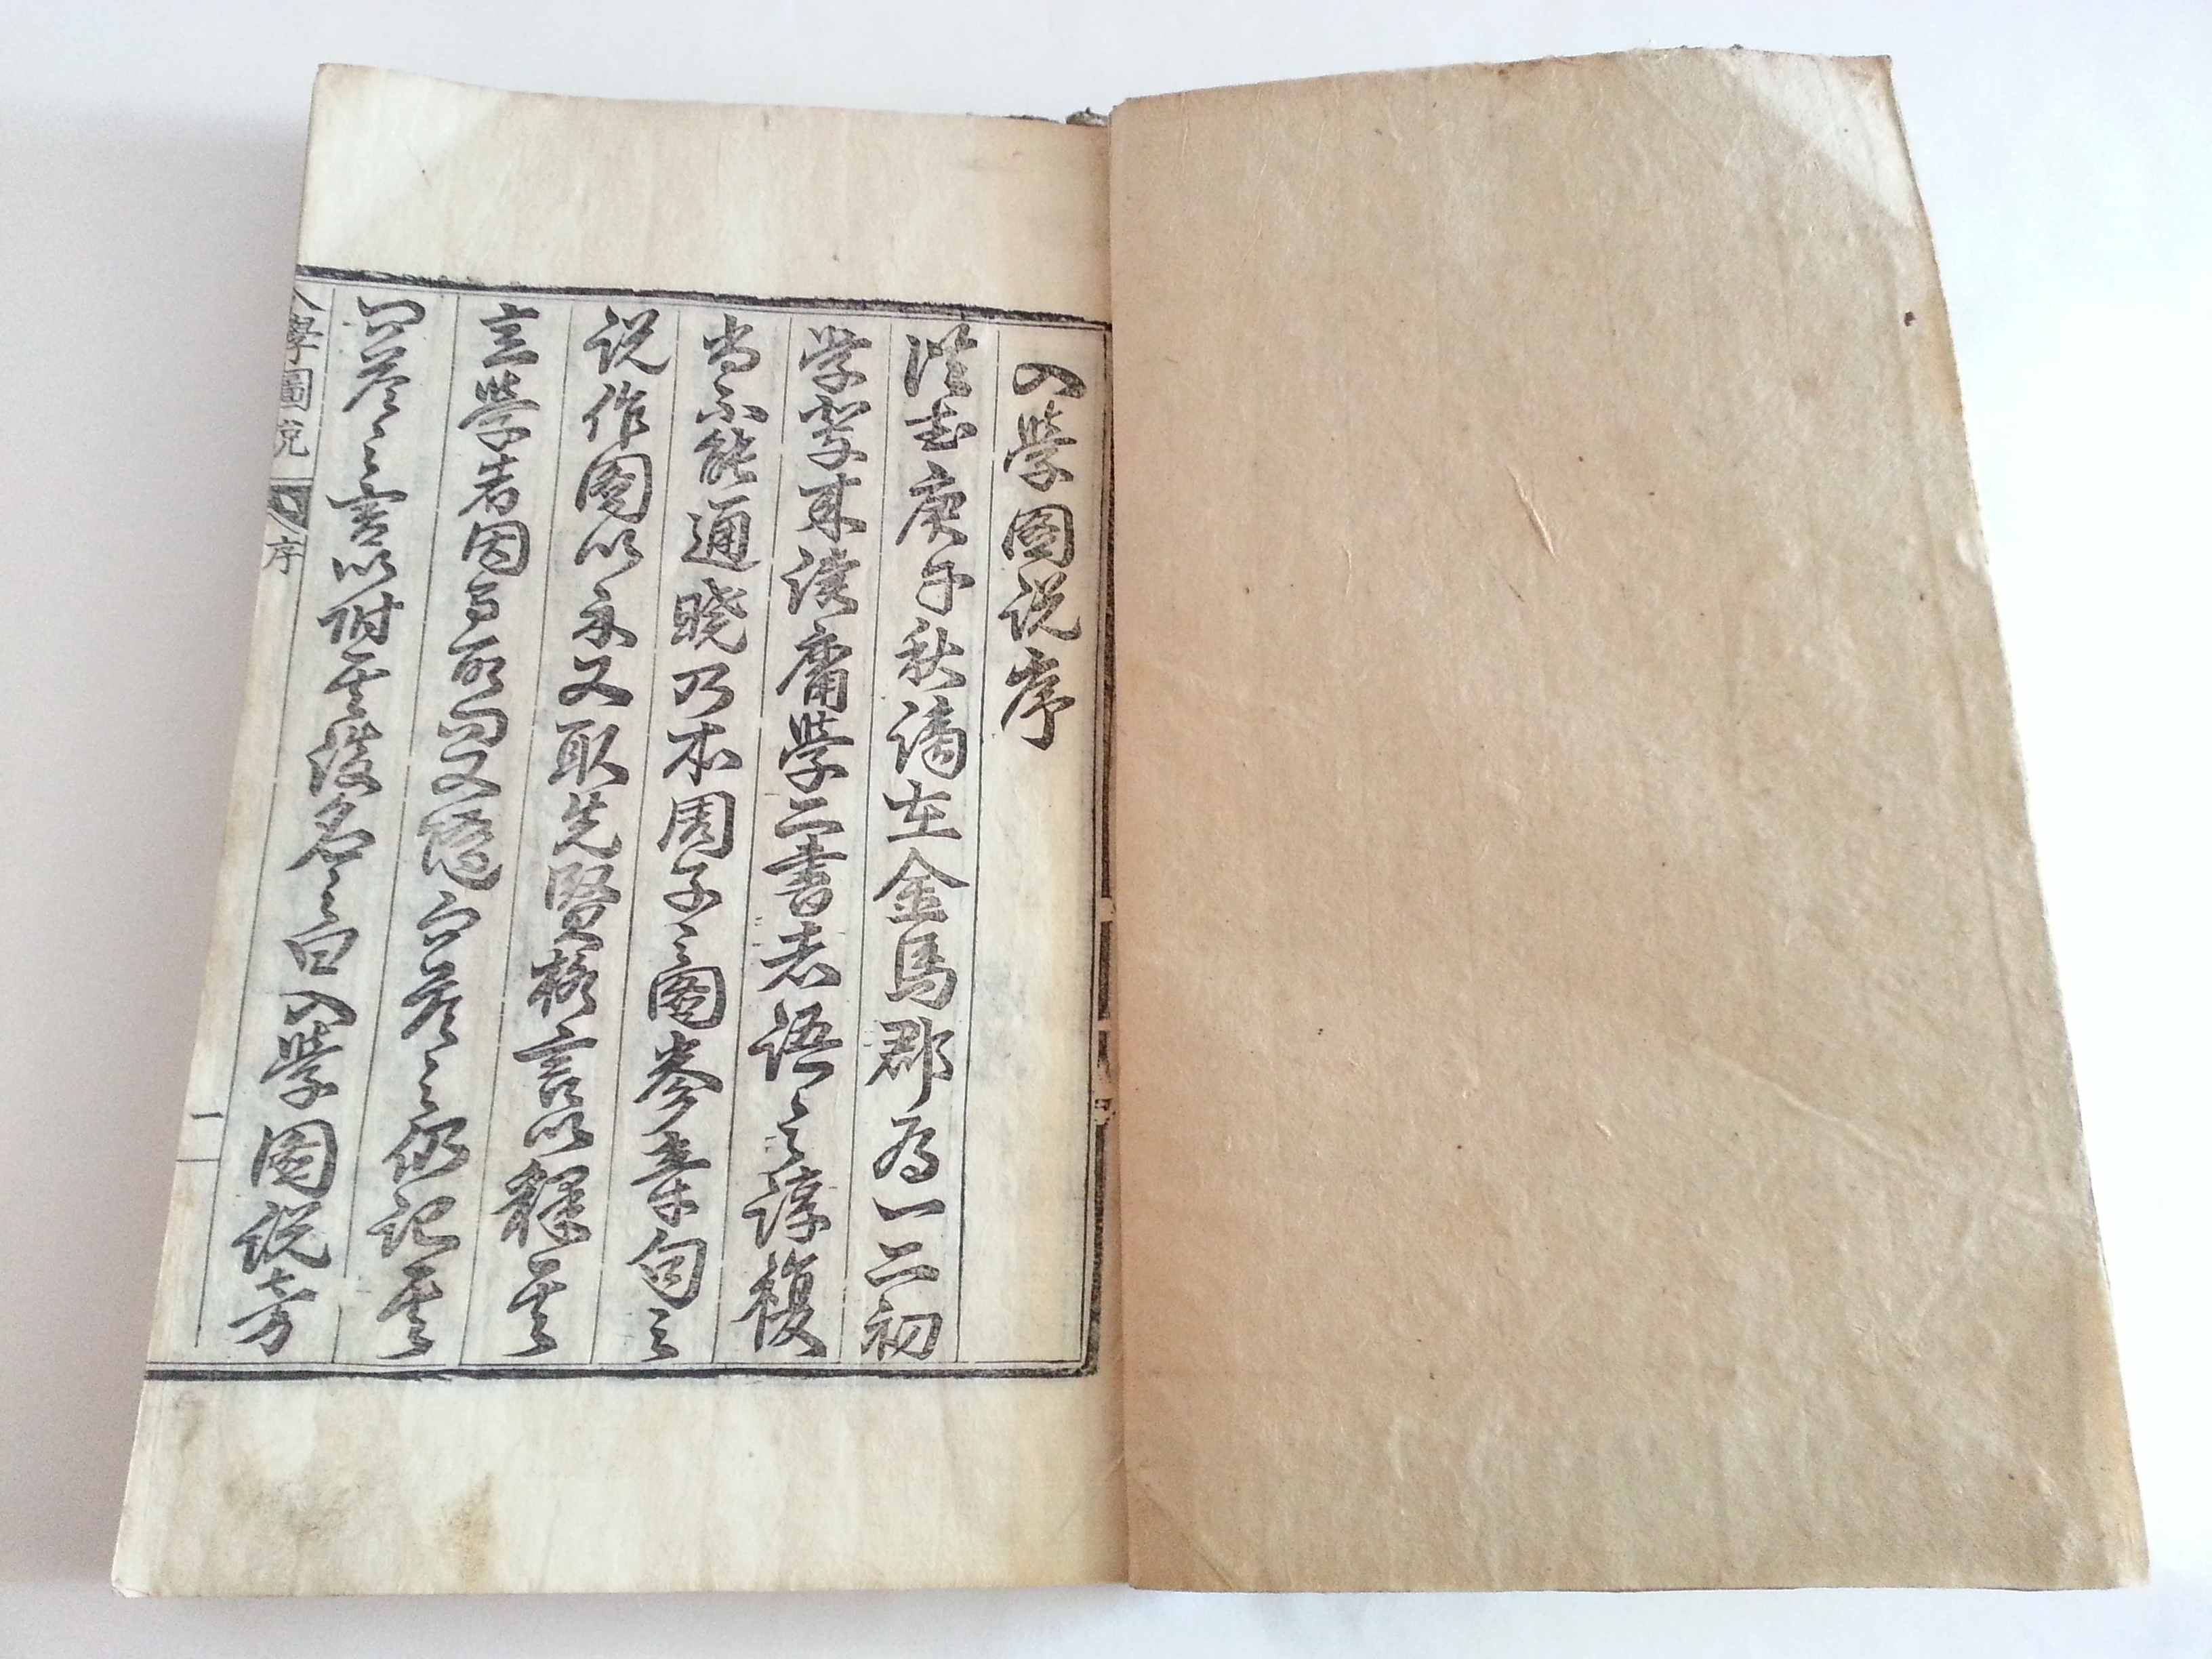 入學圖說序
洪武庚午秋謫在金馬郡有一二初
學輩來讀庸學二書者語之諄復
尚不能通曉乃本周子之圖參章句之
說作圖以示又取先賢格言以釋其
意學者因有所問又隨而答之仍記其
問答之言以附其後名之曰入學圖說旁
入學圖說 序 一